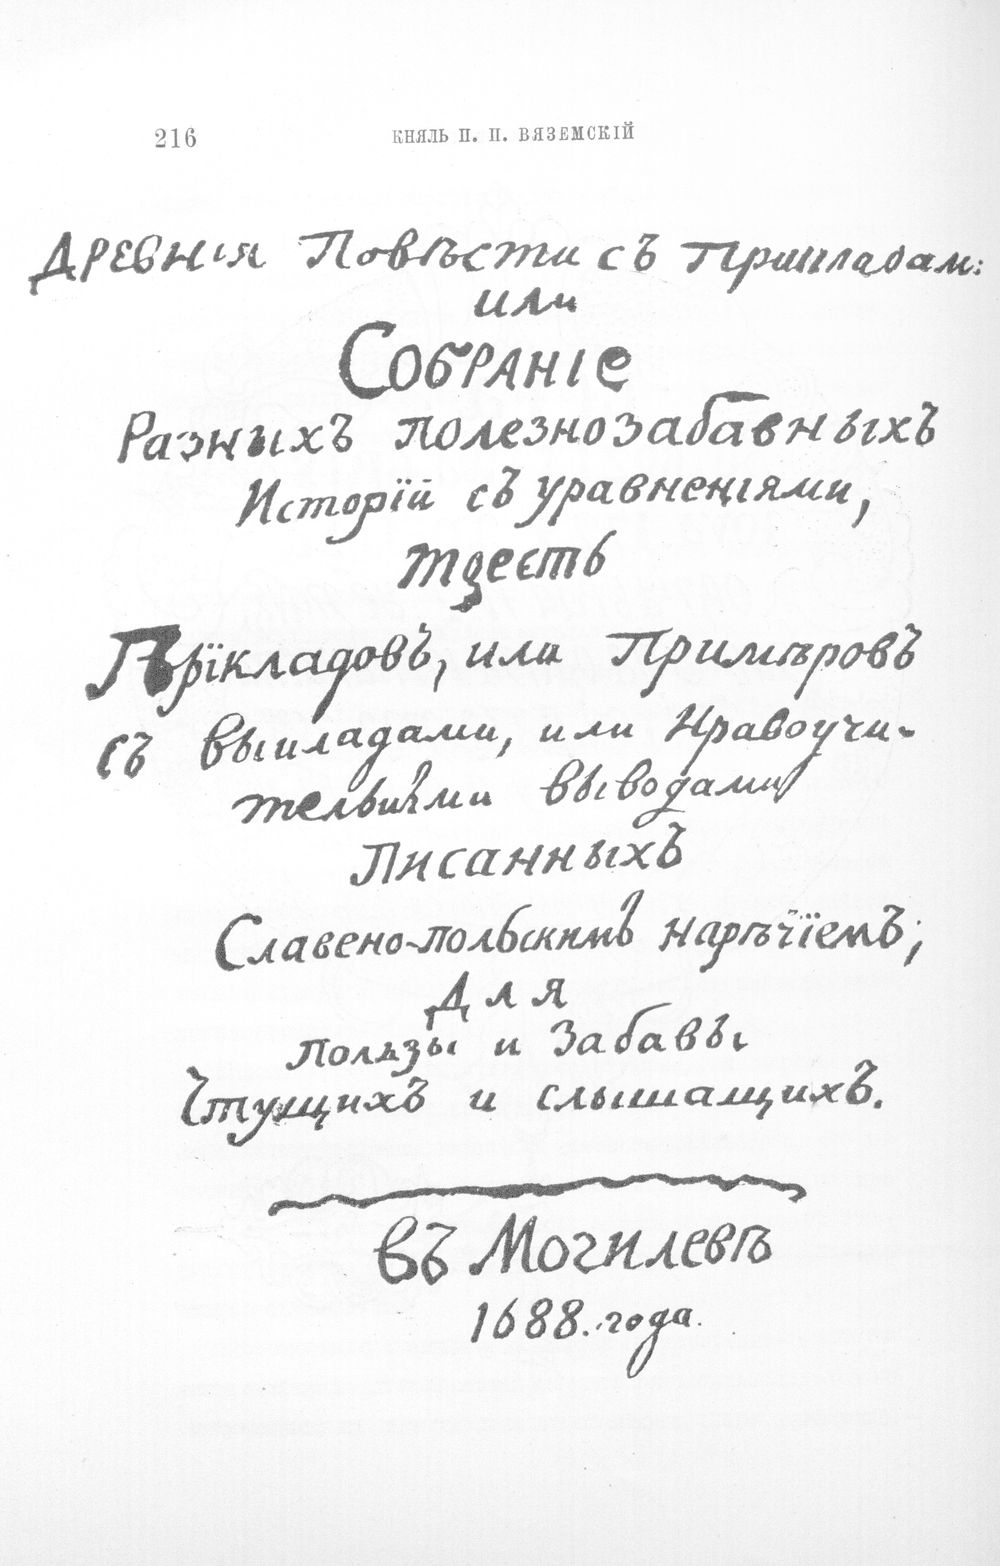 216
КНЯЛЬ П. П. ВЯЗЕМСКІЙ
Древнія Повѣсти съ Прикладам:
или
Собраніе
Разныхъ полезнозабавныхъ
Исторїй съ уравненіями,
тоестъ
Прїкладовъ, или Примѣровъ
съ выкладами, или Нравоучи-
тельными выводами
Писанныхъ
Славено-польскимъ нарѣчїемъ;
Для
пользы и забавы
Чтущихъ и слышащихъ.
въ Могилевѣ
1688. года.